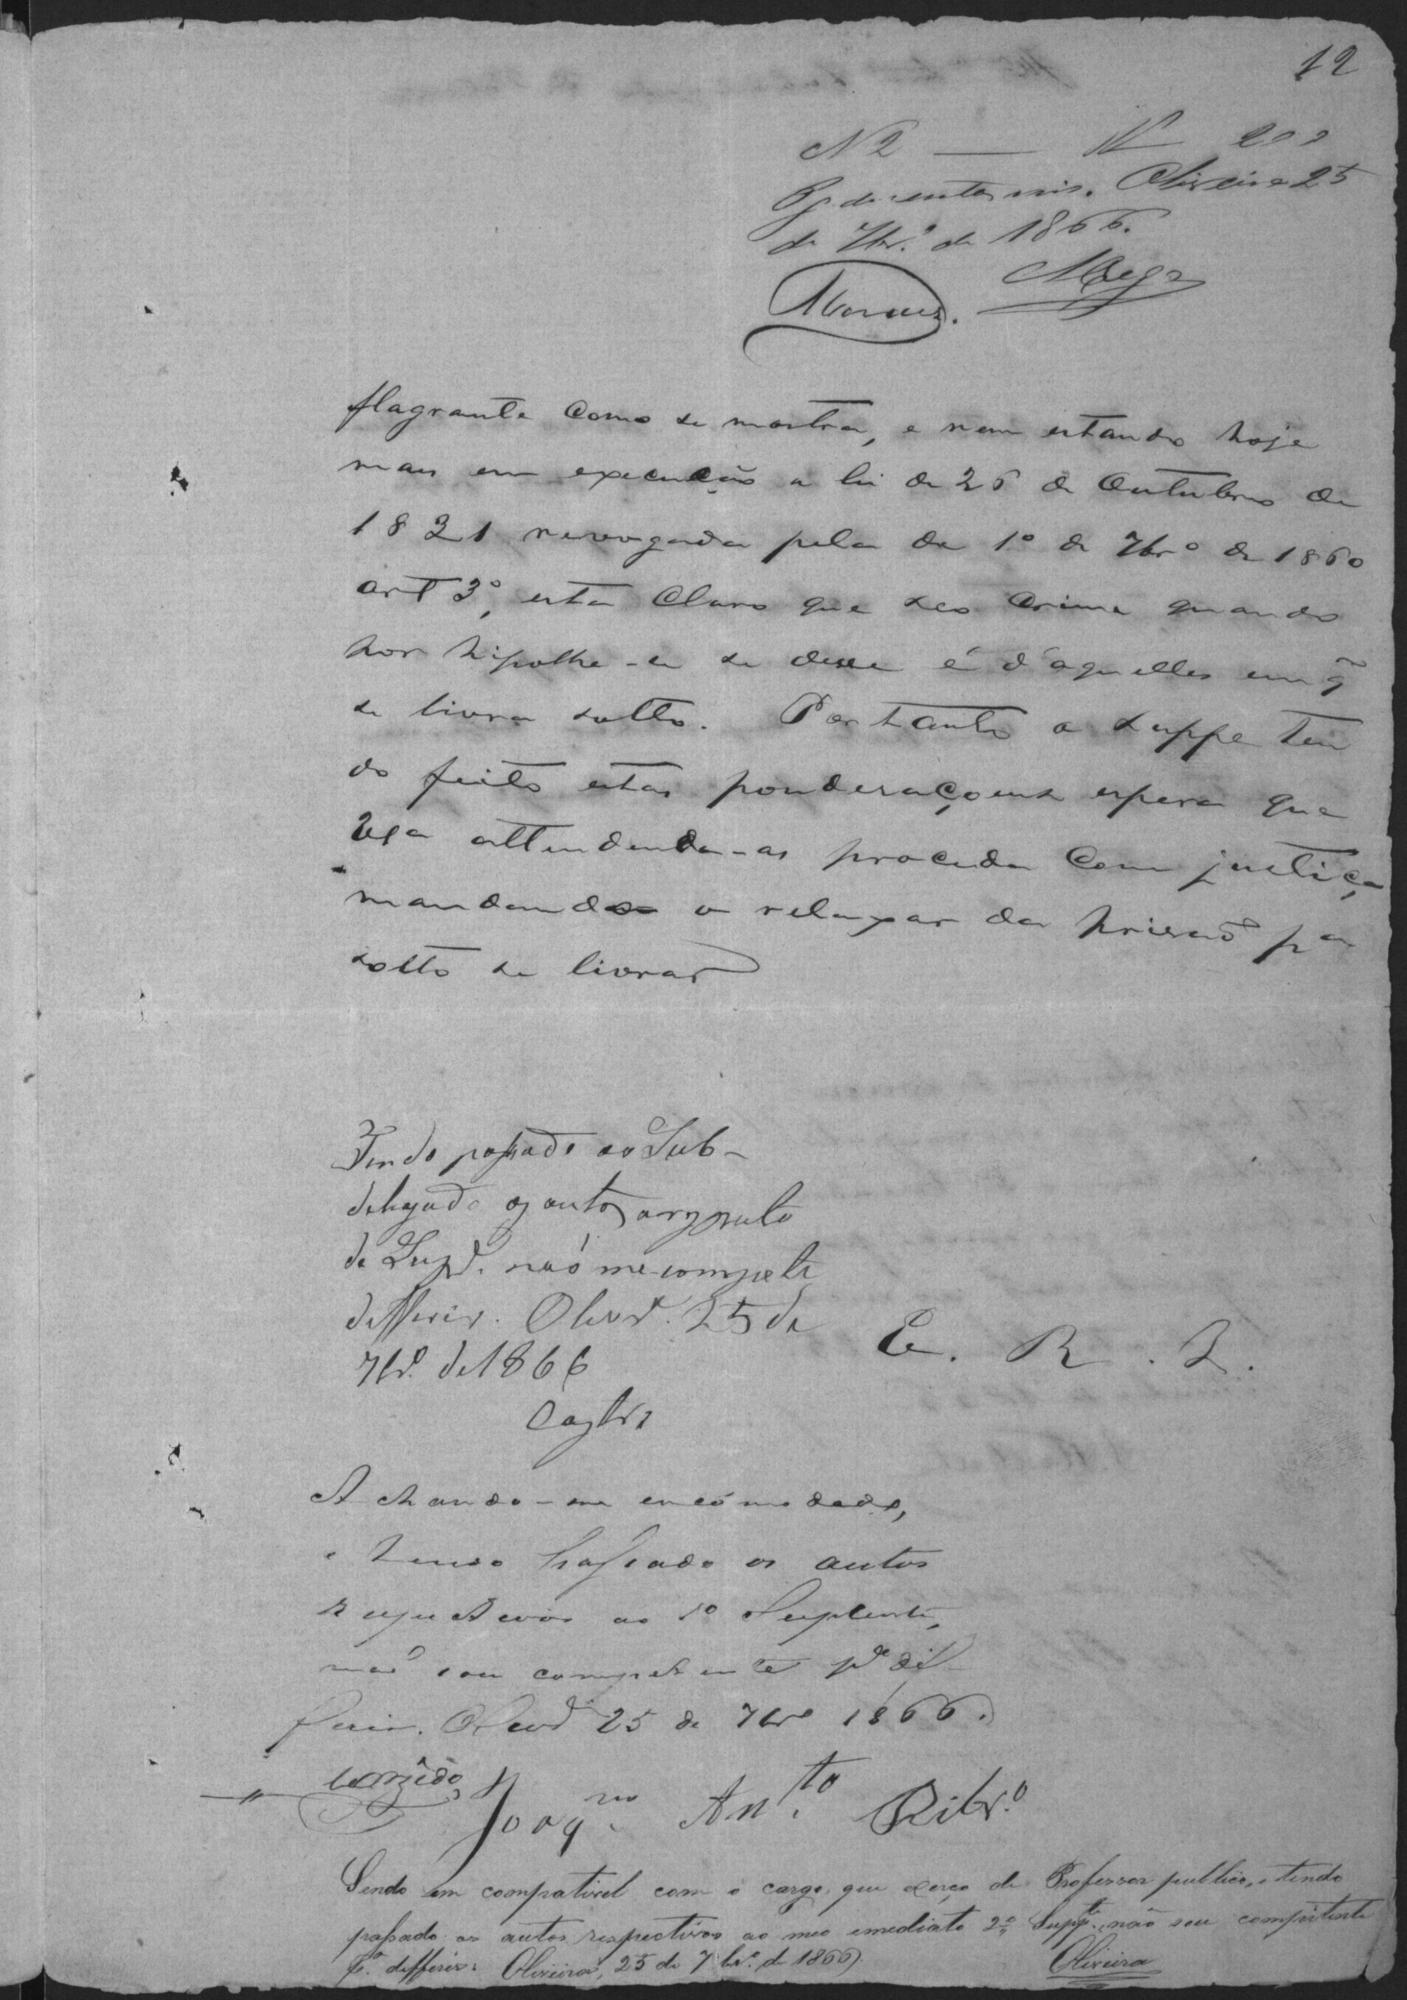 12
N 2 — N 200
Pg. duzentos reis. Oliveira 25
de 7br.º de 1866.
Moraes.
flagrante como se mostra, e nem estando hoje
mais em execução a lei de 26 de Outubro de
1831 revogada pela de 1º de 7brº de 1860
art 3º, esta claro que seo crime quando
por hipothe-se se desse é d'aquelles em q̃
se livra solto. Portanto o suppe ten
do feito estas ponderaçoens espera que
VSa attendendo-as proceda com justiça,
mandando o relaxar da prisaõ pa
solto se livrar
E. R. J.
Tendo passado ao Sub-
delegado os autos a respeito
do Supd. naõ me compete
defferir. Olivrª. 25 de
7brº. de 1866
Castro
Achando-me encómodado,
e tendo passado os autos
respectivos ao 1º Suplente,
naõ sou competente pª dif-
ferir. Olivrª 25 de 7brº 1866.
Joaqm. Anto. Ribrº.
Sendo em compativel com o cargo, que exerço de Professor publico, e tendo
passado os autos respectivos ao meo emediato 2º Suppte., não sou compitente
pª. differir. Oliveira, 25 de 7brº. de 1866.
Oliveira